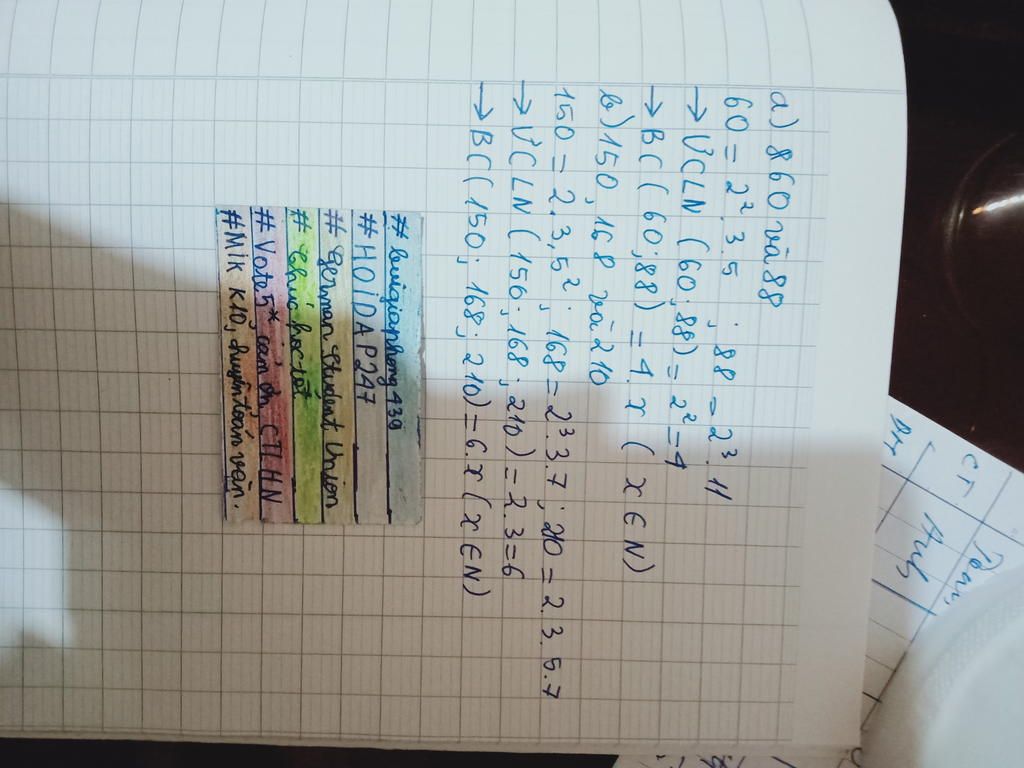 a) 860 và 88
60 = 2². 3. 5 ; 88 = 2³. 11
→ ƯCLN (60; 88) = 2² = 4
→ BC (60; 88) = 4. x ( x ∈ N)
b) 150, 168 và 210
150 = 2. 3, 5² ; 168 = 2³. 3. 7 ; 210 = 2. 3. 5. 7
→ ƯCLN (150; 168; 210) = 2. 3 = 6
→ BC (150; 168; 210) = 6. x ( x ∈ N)
# buigiaphong439
# HOIDAP247
# german student Union
# Chúc học tốt
# Vote 5*, cảm ơn, CTLHN
# Mik K10, chuyên toán văn.
CT
Toán,
Anh